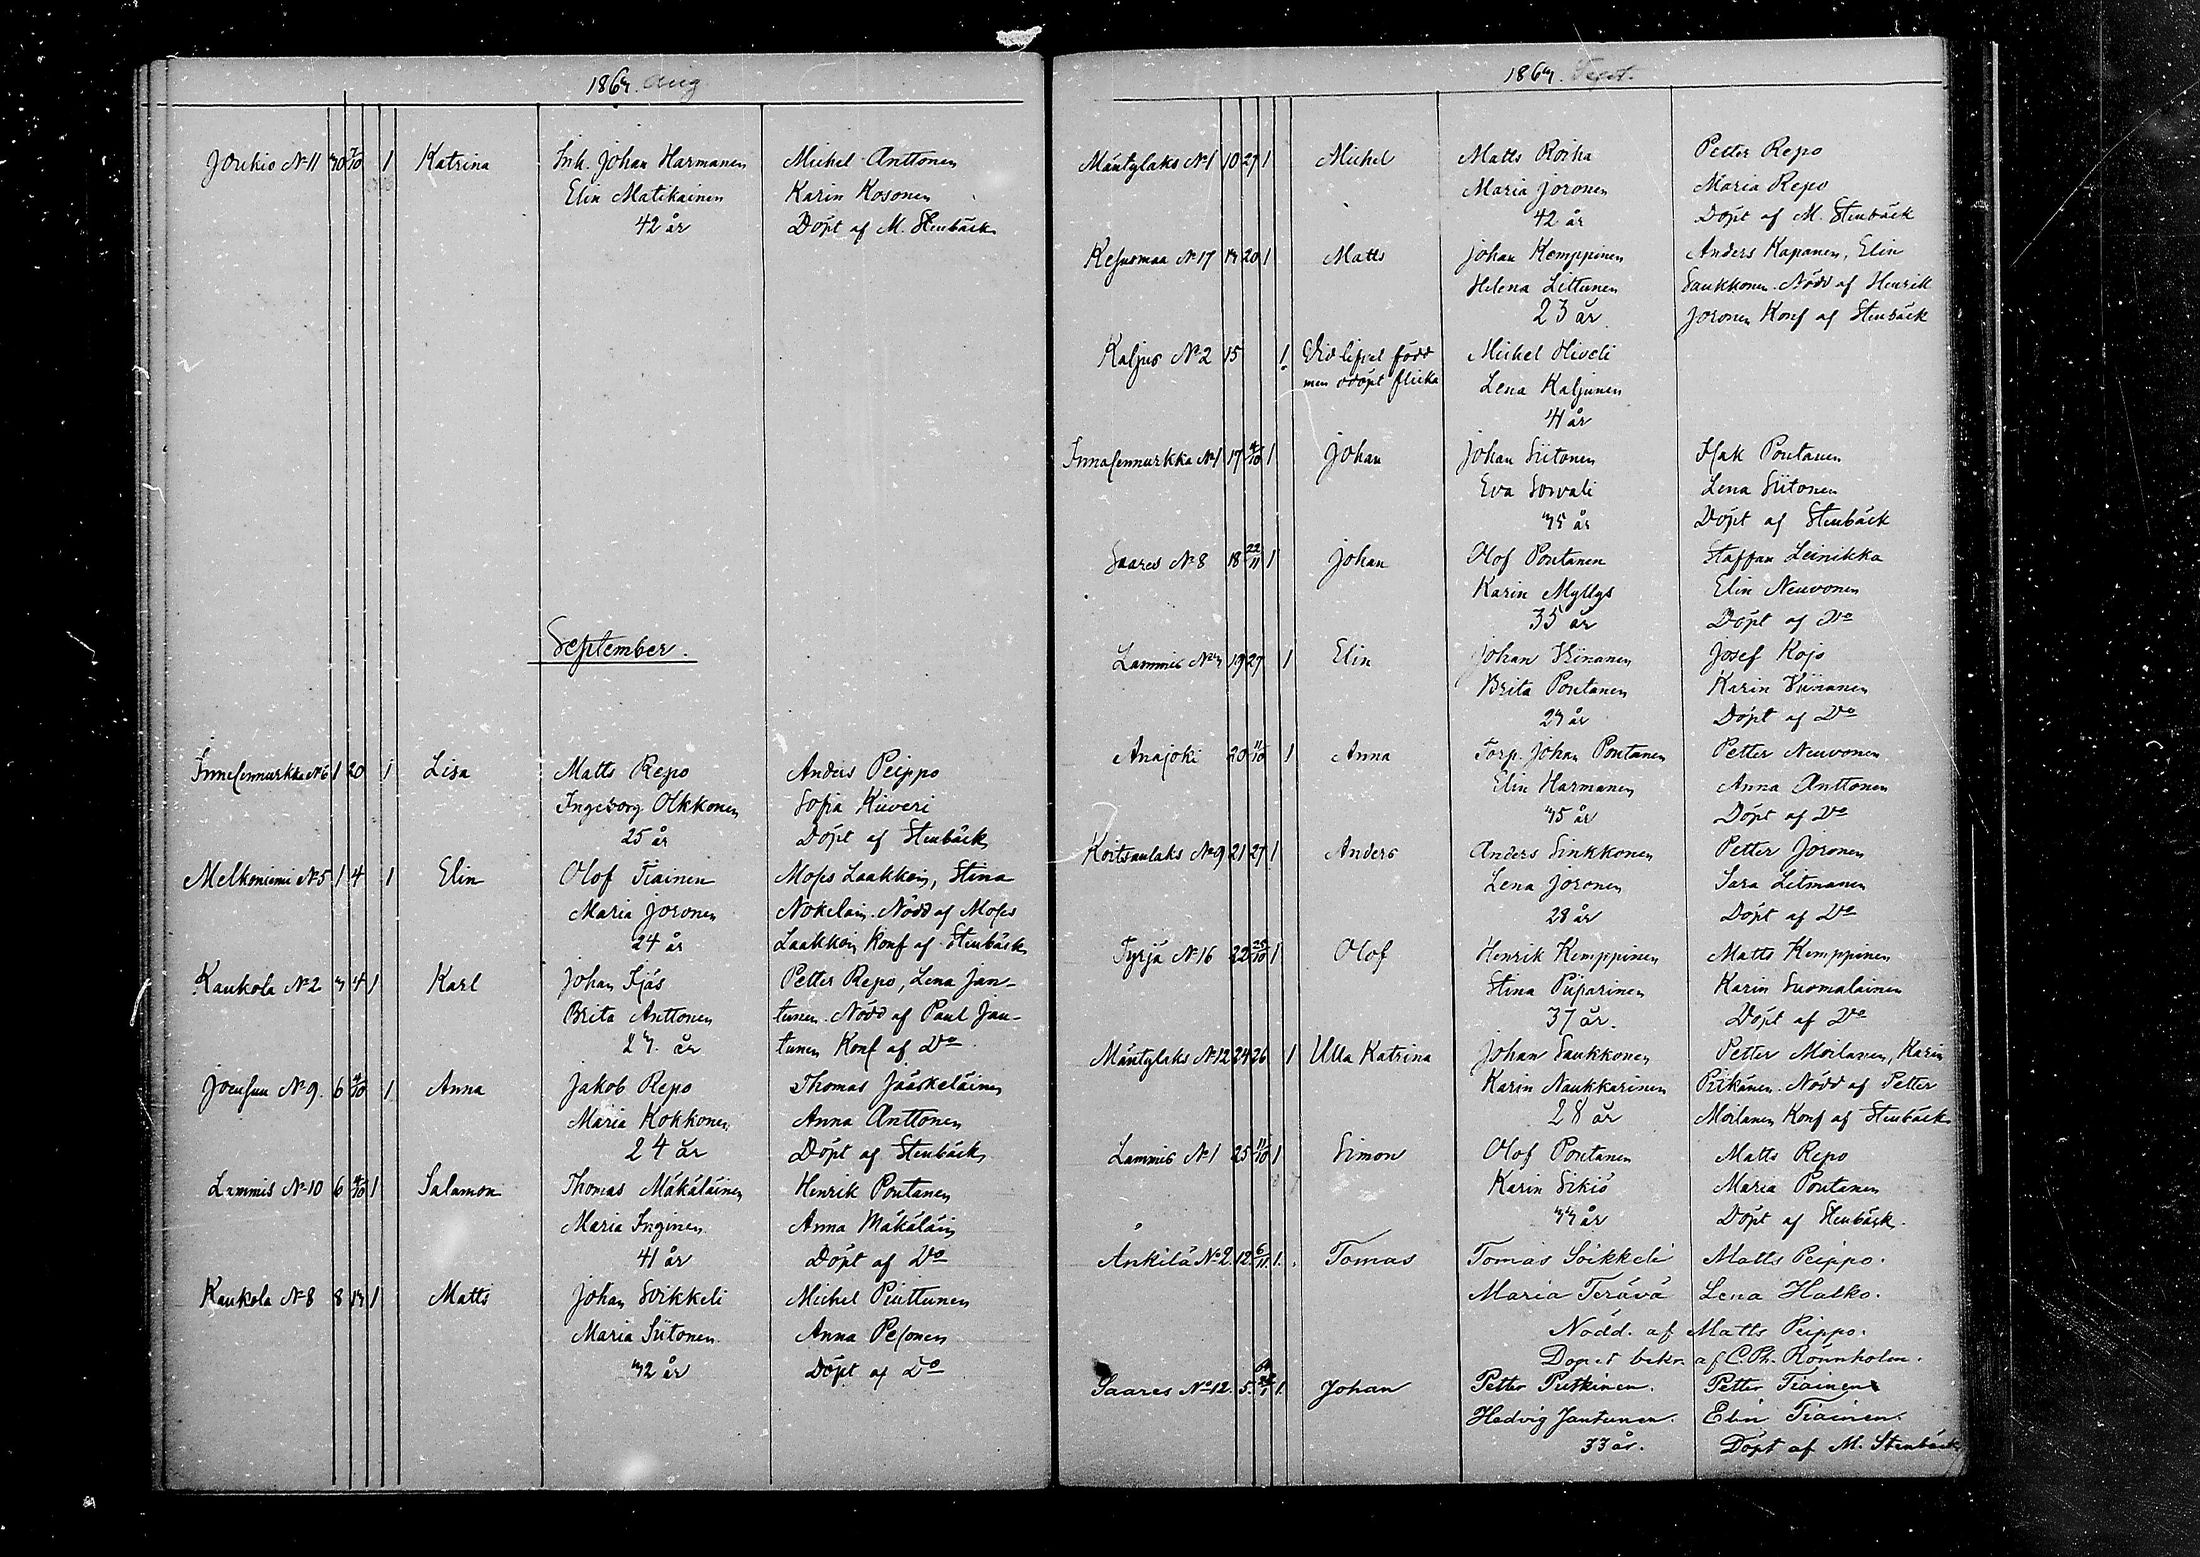 1863. Aug
Joukio No 11 30 7/10 1 Katrina Inh. Johan Harmanen Michel Anttonen
Elin Matikainen Karin Kosonen
42 år Döpt af M. Stenbäck
September.
No 6 1 20 1 Lisa Matts Repo Anders Peippo
Ingeborg Olkkonen Sofia Kiiveri
25 år Döpt af Stenbäck
Melkoniemi No 5 1 4 1 Elin Olof Tiainen Moses Laakkoin, Stina
Maria Joronen Nokelain. Nödd af Moses
24 år Laakkoin Konf af Stenbäck
Kaukola No 2 3 4 1 Karl Johan Ijäs Petter Repo, Lena Jan-
Brita Anttonen tunen. Nödd af Paul Jan-
23 år tunen Konf af Do
No 9. 6 4/10 1 Anna Jakob Repo Thomas Jääskeläinen
Maria Kokkonen Anna Anttonen
24 år Döpt af Stenbäck
Lammis No 10 6 4/10 1 Salamon Thomas Mäkäläinen Henrik Pontanen
Maria Inginen Anna Mäkäläin
41 år Döpt af Do
Kaukola No 8 8 13 1 Matts Johan Soikkeli Michel Piuttunen
Maria Siitonen Anna Pesonen
32 år Döpt af Do
1863. Sept.
Mäntylaks No 1 10 27 1 Michel Matts Roiha Petter Repo
Maria Joronen Maria Repo
42 år Döpt af M. Stenbäck
Kesusmaa No 17 13 20 1 Matts Johan Kemppinen Anders Kapanen, Elin
Helena Littunen Saukkonen. Nödd af Henrik
23 år. Joronen Konf af Stenbäck
Kaljus No 2 15 1 född Michel
men odöpt flicka Lena Kaljunen
41 år
No 1 17 4/10 1 Johan Johan Siitonen Isak Pontanen
Eva Sorvali Lena Siitonen
35 år Döpt af Stenbäck
Saares No 8 18 22/11 1 Johan Olof Pontanen Staffan Leinikka
Karin Myllys Elin Neuvonen
35 år Döpt af Do
Lammis No 3 19 27 1 Elin Johan Brita Pontanen Josef Kojo
Karin
23 år Döpt af Do
Änajoki 20 11/10 1 Anna Torp. Johan Pontanen Petter Neuvonen
Elin Harmanen Anna Anttonen
35 år Döpt af Do
Koitsanlaks No 9 21 27 1 Anders Anders Sinkkonen Petter Joronen
Lena Joronen Sara Litmanen
28 år Döpt af Do
Tyrjä No 16 22 25/10 1 Olof Henrik Kemppinen Matts Kemppinen
Stina Piiparinen Karin Suomalainen
37 år. Döpt af Do
Mäntylaks No 12 24 26 1 Ulla Katrina Johan Saukkonen Petter Moilanen, Karin
Karin Naukkarinen Pitkänen. Nödd af Petter
28 år Moilanen Konf af Stenbäck
Lammis No 1 25 11/10 1 Simon Olof Pontanen Matts Repo
Karin Sikiö Maria Pontanen
33 år Döpt af Stenbäck.
Änkilä No 2. 12. 6/11 1. Tomas Tomas Soikkeli Matts Peippo.
Maria Terävä Lena Halko.
Nödd. af Matts Peippo.
Dopet bekr. af C. Ph. Rönnholm.
Saares No 12. 5. 1. Johan Petter Putkinen. Petter Tiainen
Hedvig Jantunen. Elin Tiainen.
33 år. Döpt af M. Stenbäck